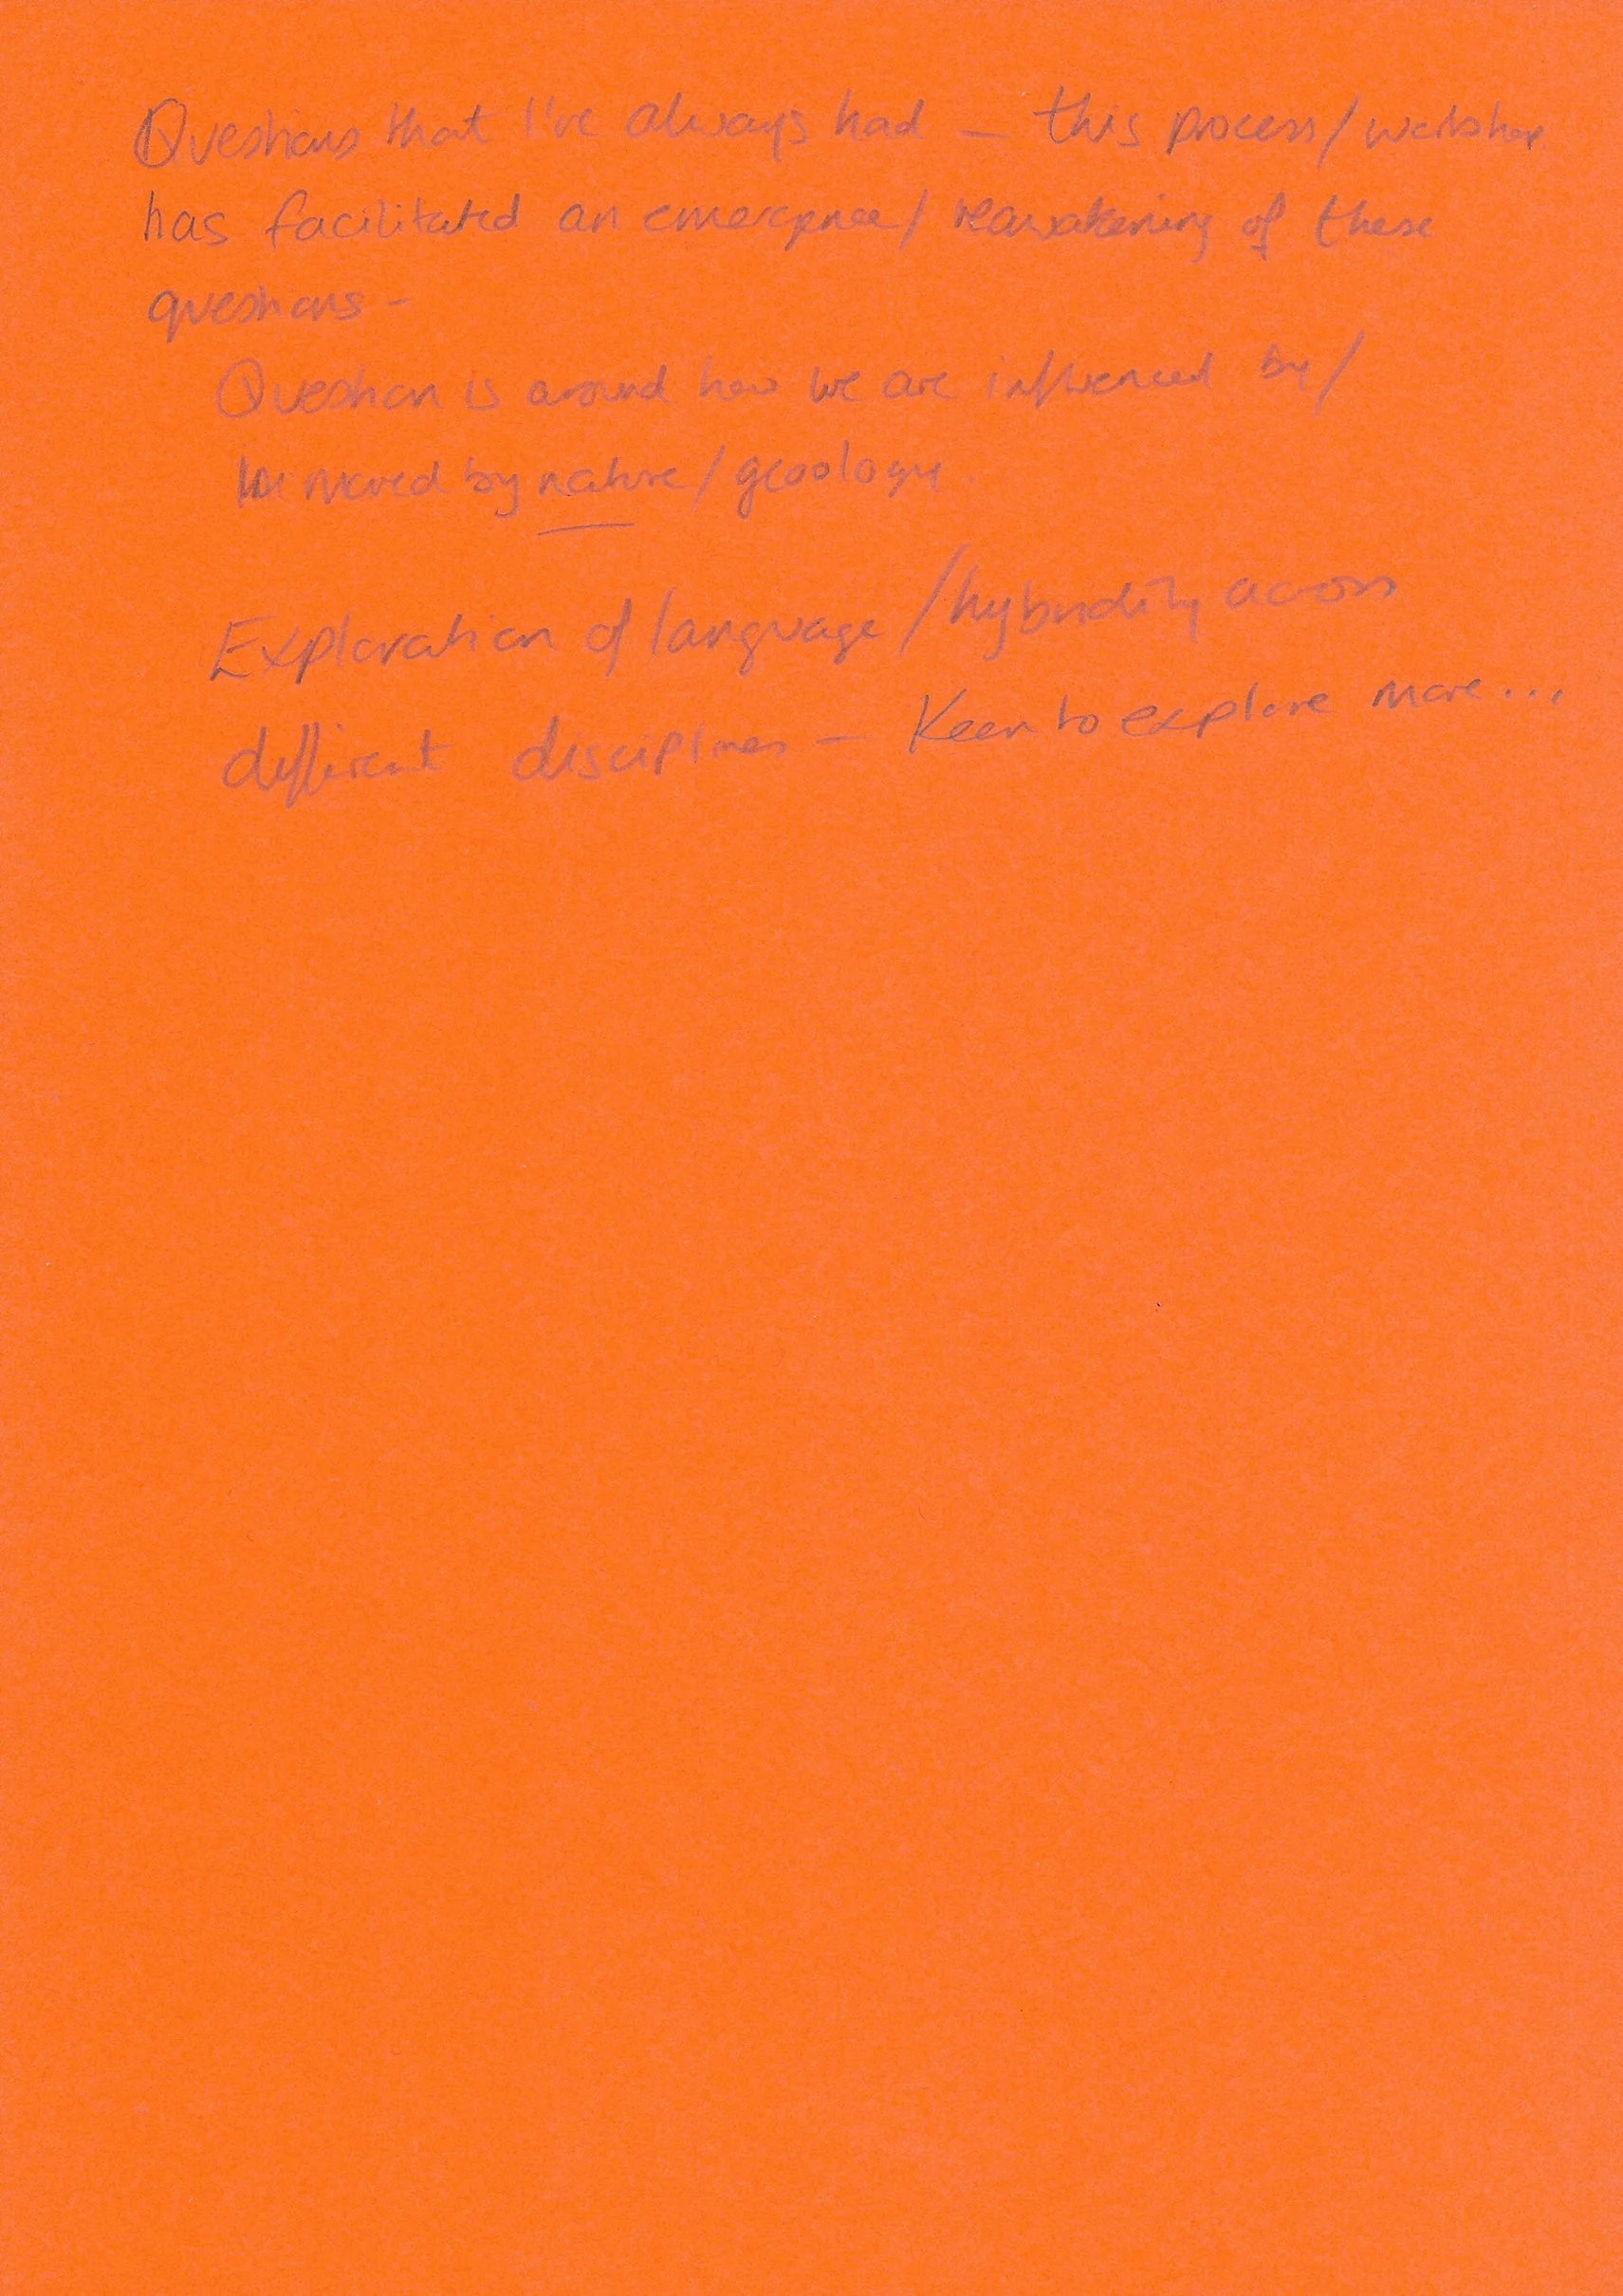 Questions that I've always had – this process/workshop
has facilitated an emergence/reawakening of these
questions –
Question is around how we are influenced by/
moved by nature/geology.
Exploration of language/hybridity across
different disciplines – Keen to explore more...